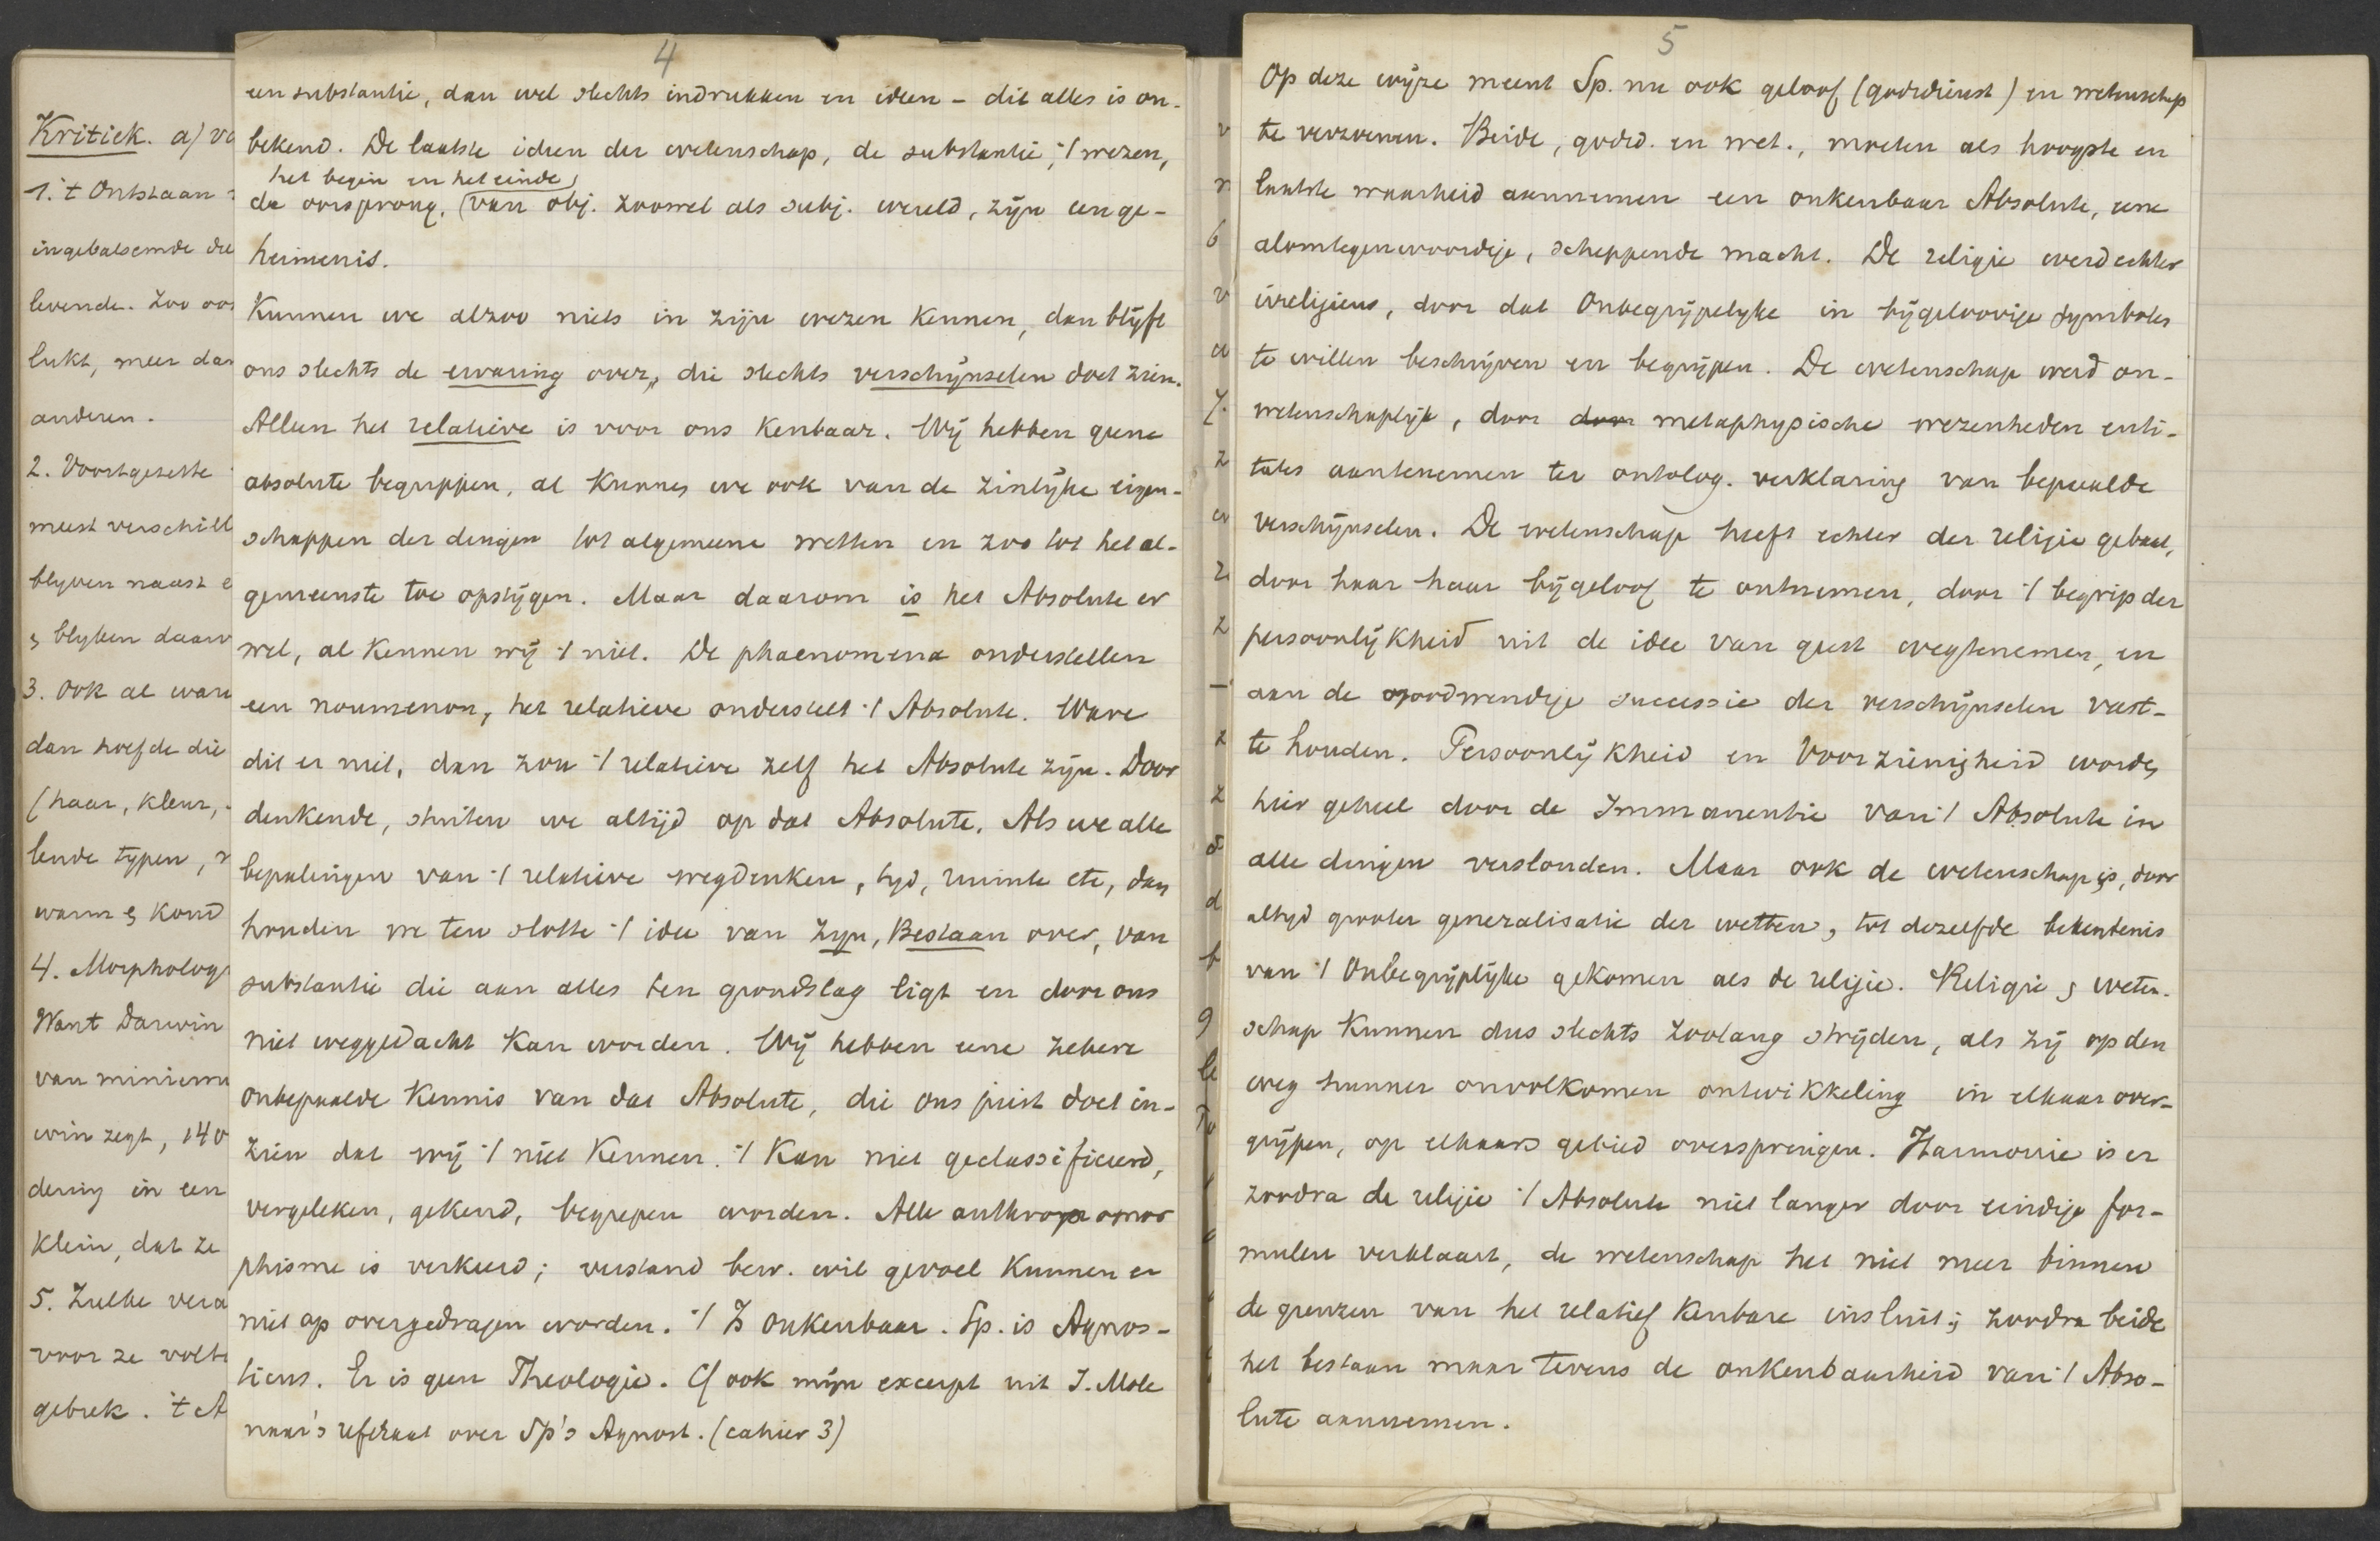 Kritiek. a) vo
1. 't Ontstaan
ingebalsemde die
levende. Zoo oo
lukt, meer dan
anderen.
2. Voortgezette
meest verschill
blyven naast e
& blyken daar
3. Ook al ware
dan hoefde die
(haar, kleur,
lende typen,
warm & koud
4. Morpholog
Want Darwin
van miniem
win zegt, 140
dering in een
klein, dat ze
5. Zulke vera
voor ze volt
gebrek. 't A
4
een substantie, dan wel slechts indrukken en ideen - dit alles is on-
bekend. De laatste ideen der wetenschap, de substantie, 't wezen,
het begin en het einde,
de oorsprong, (van obj. zoowel als subj. wereld, zijn een ge-
heimenis.
Kunnen we alzoo niets in zijn wezen kennen, dan blijft
ons slechts de ervaring over, die slechts verschijnselen doet zien.
Alleen het relatieve is voor ons kenbaar. Wij hebben geene
absolute begrippen, al kunnen we ook van de zinlijke eigen-
schappen der dingen tot algemeene wetten en zoo tot het al-
gemeenste toe opstijgen. Maar daarom is het Absolute er
wel, al kennen wij 't niet. De phaenomena onderstellen
een noumenon, het relatieve onderstelt 't Absolute. Ware
dit er niet, dan zou 't relatieve zelf het Absolute zijn. Door
denkende, stuiten we altijd op dat Absolute. Als we alle
bepalingen van 't relatieve wegdenken, tyd, ruimte etc, dan
houden we ten slotte 't idee van Zyn, Bestaan over, van
substantie die aan alles ten grondslag ligt en door ons
niet weggedacht kan worden. Wij hebben eene zekere
onbepaalde kennis van dat Absolute, die ons juist doet in-
zien dat wij 't niet kennen. 't Kan niet geclassificeerd,
vergeleken, gekend, begrepen worden. Alle anthropomor
phisme is verkeerd; verstand bew. wil gevoel kunnen er
niet op overgedragen worden. 't Is onkenbaar. Sp. is Agnos-
ticus. Er is geen Theologie. Cf ook mijn excerpt uit J. Mole
naar's referaat over Sp's Agnost. (cahier 3)
5
Op deze wijze meent Sp. nu ook geloof (godsdienst) en wetenschap
te verzoenen. Beide, godsd. en wet., moeten als hoogste en
laatste waarheid aannemen een onkenbaar Absolute, eene
alomtegenwoordige, scheppende macht. De religie werd echter
irreligieus, door dat Onbegrijpelyke in bijgeloovige symbolen
te willen beschrijven en begrijpen. De wetenschap werd on-
wetenschaplijk, door door metaphysische wezenheden enti-
tates aantenemen ter ontolog. verklaring van bepaalde
verschijnselen. De wetenschap heeft echter der religie gebaat,
door haar haar bijgeloof te ontnemen, door 't begrip der
persoonlijkheid uit de idee van geest wegtenemen, en
aan de noodwendige successie der verschijnselen vast-
te houden. Persoonlijkheid en Voorzienigheid worden
hier geheel door de Immanentie van 't Absolute in
alle dingen verslonden. Maar ook de wetenschap is, door
altyd grooter generalisatie der wetten, tot dezelfde bekentenis
van 't Onbegrijplijke gekomen als de religie. Religie & weten-
schap kunnen dus slechts zoolang strijden, als zij op den
weg hunner onvolkomen ontwikkeling in elkaar over-
grijpen, op elkaars gebied overspringen. Harmonie is er
zoodra de religie 't Absolute niet langer door eindige for-
mulen verklaart, de wetenschap het niet meer binnen
de grenzen van het relatief kenbare insluit; zoodra beide
het bestaan maar tevens de onkenbaarheid van 't Abso-
lute aannemen.